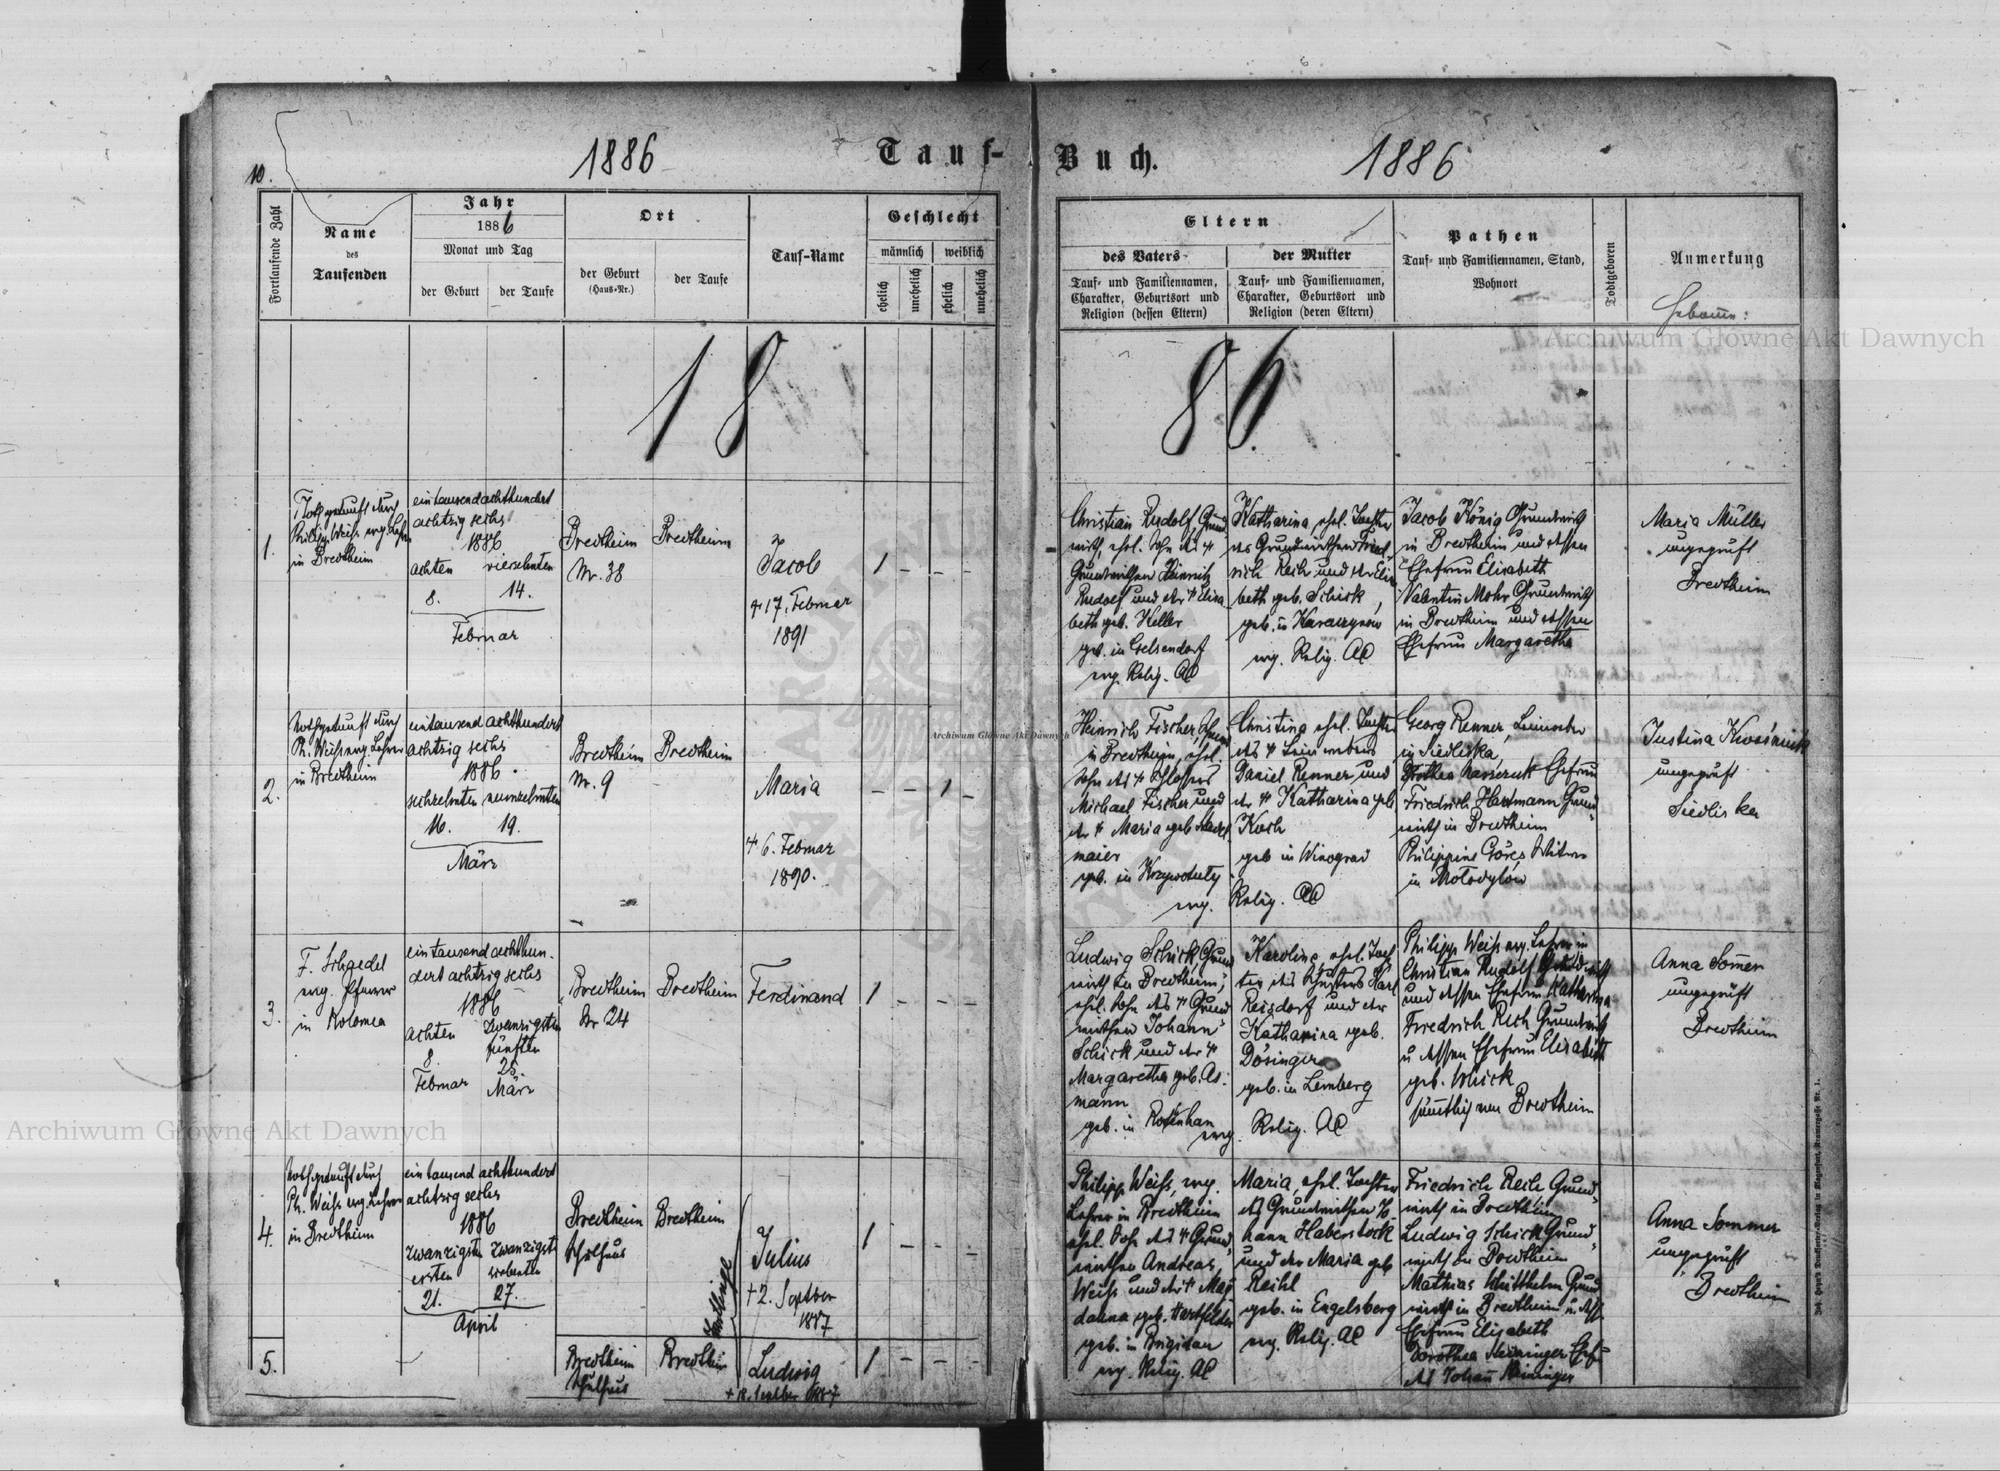 10.
1886
Tauf-
Buch.
1886
Fortlaufende Zahl
Name
des
Taufenden
Jahr
1886
Monat und Tag
der Geburt
der Taufe
Ort
der Geburt
(Haus-Nr.)
der Taufe
Tauf-Name
Geschlecht
männlich
weiblich
ehelich
unehelich
ehelich
unehelich
Eltern
des Vaters
Tauf- und Familiennamen,
Charakter, Geburtsort und
Religion (dessen Eltern)
der Mutter
Tauf- und Familiennamen,
Charakter, Geburtsort und
Religion (deren Eltern)
Pathen
Tauf- und Familiennamen, Stand,
Wohnort
Todtgeboren
Anmerkung
Hebamme:
18
86
1.
Nothgetauft durch
Philipp Weiß evg. Lehrer
in Bredtheim
eintausendachthundert
achtzig sechs
1886
achten vierzehnten
8. 14.
Februar
Bredtheim
Nr. 38
Bredtheim
Jacob
17. Februar
1891
1 - - -
Christian Rudolf Grund
wirth, ehel. Sohn des
Grundwirthen Heinrich
Rudolf und der Elisa
beth geb. Keller
geb. in Gelsendorf
evg. Relig. AC
Katharina, ehel. Tochter
des Grundwirthen Fried
rich Reih und der Elisa
beth geb. Schick,
geb. in
evg. Relig. AC
Jacob König Grundwirth
in Bredtheim und dessen
Ehefrau Elisabeth
Valentin Mohr Grundwirth
in Bredtheim und dessen
Ehefrau Margaretha
Maria Müller
ungeprüft
Bredtheim
2.
Nothgetauft durch
Ph. Weiß evg. Lehrer
in Bredtheim
eintausend achthundert
achtzig sechs
1886.
sechzehnten neunzehnten
16. 19.
März
Bredtheim
Nr. 9
Bredtheim
Maria
6. Februar
1890.
- - 1 -
Heinrich Fischer,
in Bredtheim, ehel.
Sohn des Schlossers
Michael Fischer und
der Maria geb.
maier
geb. in
evg.
Christina ehel. Tochter
des Leinwebers
Daniel Renner und
der Katharina geb
Koch
geb in Winograd
Relig. AC
Georg Renner, Leinweber
in Siedliska,
Dorothea Ehefrau
Friedrich Hartmann Grund-
wirth in Bredtheim
Philippine
in Molodylow
Justina
ungeprüft
Siedliska
3.
F. Schaedel
evg. Pfarrer
in Kolomea
eintausend achthun-
dert achtzig sechs
1886
achten zwanzigsten
fünften
8. 25.
Februar März
Bredtheim
Nr 24
Bredtheim
Ferdinand
1 - - -
Ludwig Schick Grund
wirth in Bredtheim,
ehel. Sohn des Grund
wirthen Johann
Schick und der
Margaretha geb. As-
mann
geb. in Rosenhan
evg.
Karoline, ehel. Toch
ter des Karl
Reisdorf und der
Katharina geb.
Dösinger
geb. in Lemberg
Relig. AC
Philipp Weiß evg. Lehrer in
Christian Rudolf Grundwirth
und dessen Ehefrau Katharina
Friedrich Reih Grundwirth
u dessen Ehefrau Elisabeth
geb. Schick
sämtlich von Bredtheim
Anna Somer
ungeprüft
Bredtheim
4.
Nothgetauft durch
Ph. Weiß evg. Lehrer
in Bredtheim
eintausend achthundert
achtzig sechs
1886
zwanzigst zwanzigst
ersten siebenten
21. 27.
April
Bredtheim
Schulhaus
Bredtheim
Zwillinge
Julius
+ 2. September
1887
1 - - -
Philipp Weiß, evg.
Lehrer in Bredtheim
ehel. Sohn des Grund-
wirthen Andreas
Weiß und der Mag
dalena geb.
geb. in Brigidau
evg. Relig. AC
Maria, ehel. Tochter
des Grundwirthen Jo
hann Haberstock
und der Maria geb
Reihl
geb. in Engelsberg
evg. Relig. AC
Friedrich Reih Grund-
wirth in Bredtheim
Ludwig Schick Grund-
wirth in Bredtheim
Mathias Grund
wirth in Bredtheim u. dess
Ehefrau Elisabeth
Dorothea Meininger Ehef
des Johann Meininger
Anna Sommer
ungeprüft
Bredtheim
5.
Bredtheim
Schulhaus
Bredtheim
Ludwig
+ 18. September 1887
1 - - -
Archiwum Główne Akt Dawnych
Archiwum Główne Akt Dawnych
Archiwum Główne Akt Dawnych